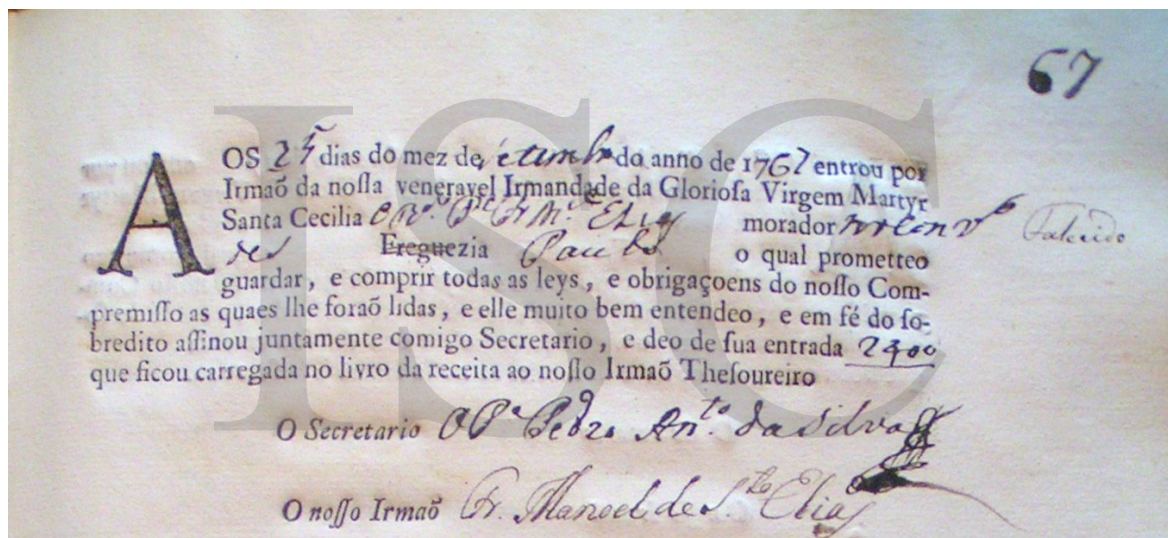 67
AOS 25 dias do mez de setembro do anno de 1767 entrou por
Irmaõ da noſſa veneravel Irmandade da Glorioſa Virgem Martyr
Santa Cecilia O R.º P.e Fr. M.el Elias morador no Conv.to
des Freguezia Paulos o qual prometteo Falecido
guardar, e comprir todas as leys, e obrigaçoens do noſſo Com-
premiſſo as quaes lhe foraõ lidas, e elle muito bem entendeo, e em fé do ſo-
bredito aſſinou juntamente comigo Secretario, e deo de ſua entrada 2400
que ficou carregada no livro da receita ao noſſo Irmaõ Theſoureiro
O Secretario O P.e Pedro An.to da Silva
O noſſo Irmaõ Fr. Manoel de S.to Elias
ISC